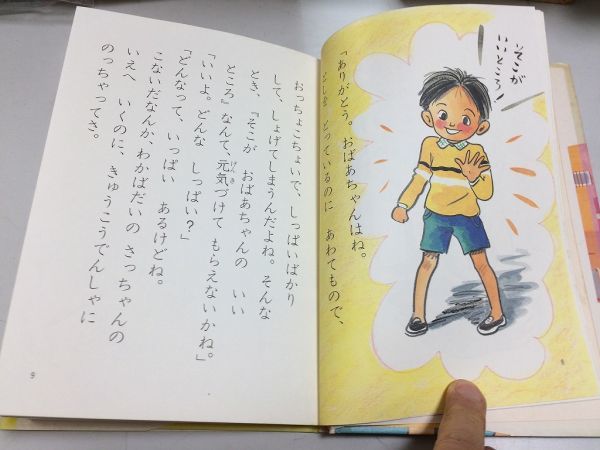 そこが
いいところ!
「ありがとう。おばあちゃんはね。
としを とっているのに あわてもので、
8
おっちょこちょいで、しっぱいばかり
して、しょげてしまうんだよね。そんな
とき、『そこが おばあちゃんの いい
ところ』なんて、元気づけて もらえないかね。」
げんき
「いいよ。どんな しっぱい?」
「どんなって、いっぱい あるけどね。
こないだなんか、わかばだいの さっちゃんの
いえへ いくのに、きゅうこうでんしゃに
のっちゃってさ。
9